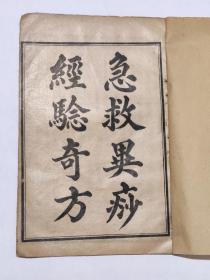 急救異痧
經驗奇方